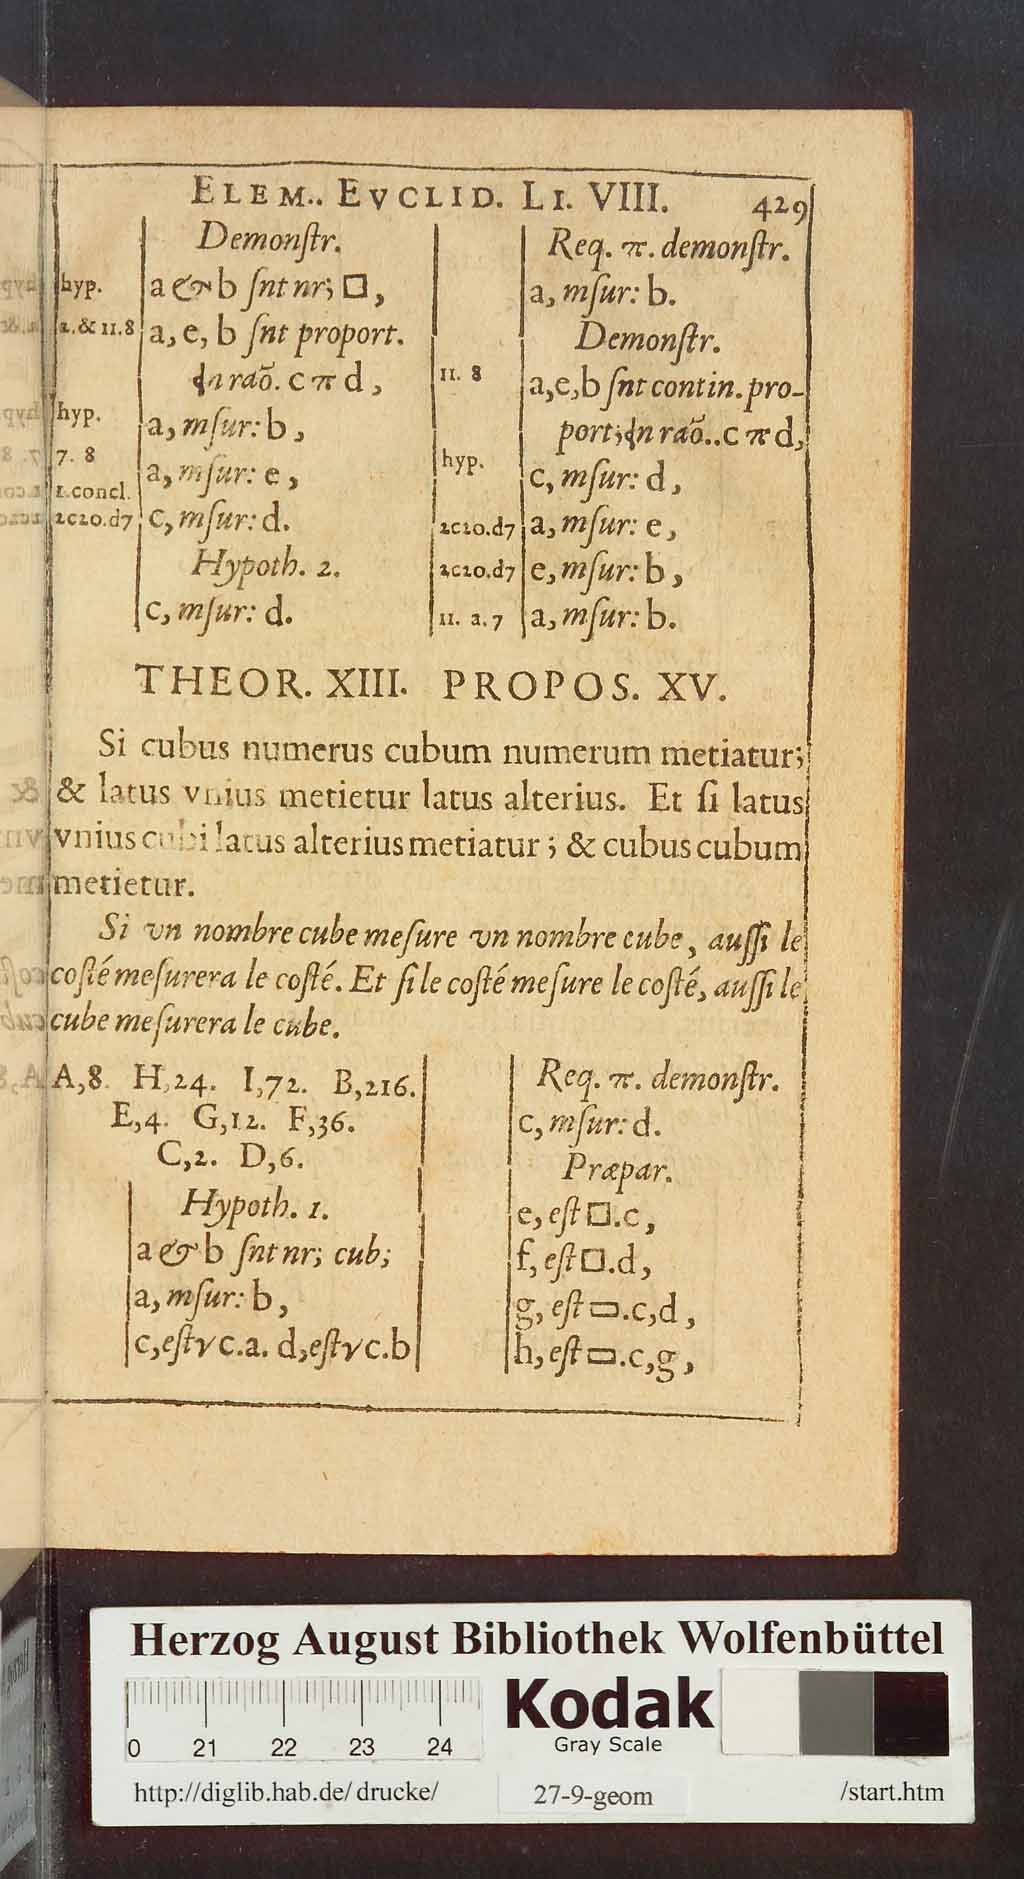 ELEM.. EVCLID. LI. VIII. 429
Demonſtr.
hyp. a & b ſnt nr; □,
2. & 11.8 a, e, b ſnt proport.
in raõ. c π d,
hyp. a, mſur: b,
7. 8 a, mſur: e,
1.concl.
2c20.d7 c, mſur: d.
Hypoth. 2.
c, mſur: d.
Req. π. demonſtr.
a, mſur: b.
Demonſtr.
11. 8 a,e,b ſnt contin. pro-
port; in raõ.. c π d,
hyp. c, mſur: d,
2c20.d7 a, mſur: e,
2c20.d7 e, mſur: b,
11. a. 7 a, mſur: b.
THEOR. XIII. PROPOS. XV.
Si cubus numerus cubum numerum metiatur;
& latus vnius metietur latus alterius. Et ſi latus
vnius cubi latus alterius metiatur; & cubus cubum
metietur.
Si vn nombre cube meſure vn nombre cube, auſſi le
coſté meſurera le coſté. Et ſi le coſté meſure le coſté, auſſi le
cube meſurera le cube.
A,8. H,24. I,72. B,216.
E,4. G,12. F,36.
C,2. D,6.
Hypoth. 1.
a & b ſnt nr; cub;
a, mſur: b,
c, eſt √ c.a. d, eſt √ c.b
Req. π. demonſtr.
c, mſur: d.
Præpar.
e, eſt □.c,
f, eſt □.d,
g, eſt ▭.c,d,
h, eſt ▭.c,g,
Herzog August Bibliothek Wolfenbüttel
0 21 22 23 24
Kodak
Gray Scale
http://diglib.hab.de/drucke/ 27-9-geom /start.htm